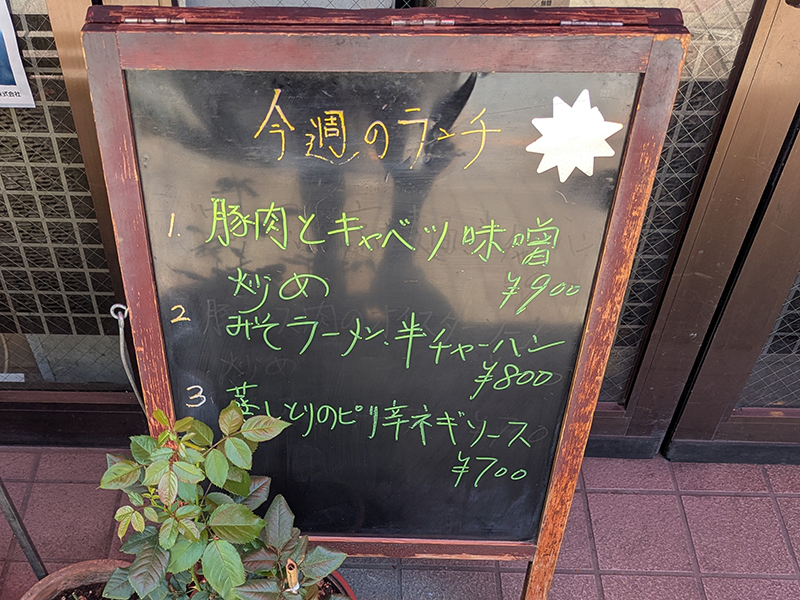 今週のランチ
1. 豚肉とキャベツ味噌
炒め ¥900
2 みそラーメン、半チャーハン
¥800
3 蒸しどりのピリ辛ネギソース
¥700
株式会社